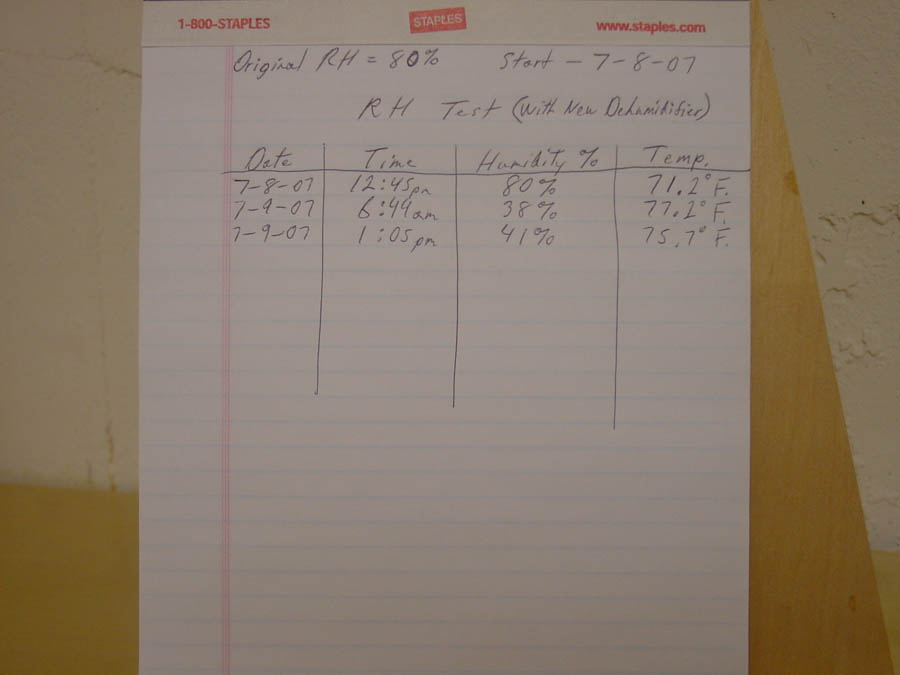 1-800-STAPLES STAPLES www.staples.com
Original RH = 80% Start - 7-8-07
RH Test (With New Dehumidifier)
Date Time Humidity % Temp.
7-8-07 12:45pm 80% 71.2° F.
7-9-07 6:44am 38% 77.2° F.
7-9-07 1:05pm 41% 75.7° F.